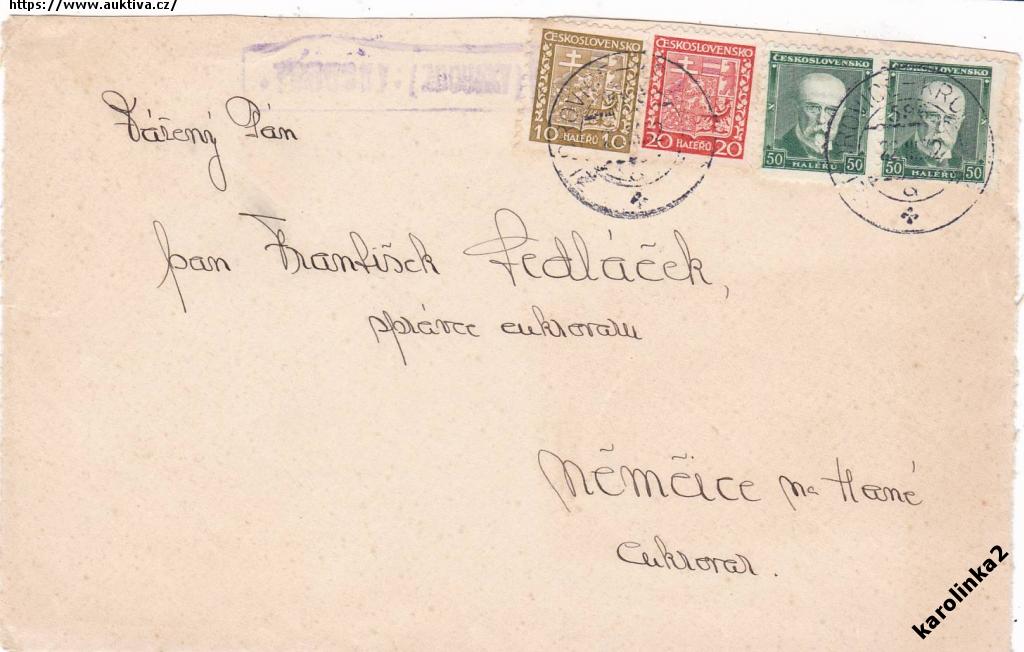 https://www.auktiva.cz/
ČESKOSLOVENSKO
10 HALÉŘŮ 10
ČESKOSLOVENSKO
20 HALÉŘŮ 20
ČESKOSLOVENSKO
50 HALÉŘŮ 50
ČESKOSLOVENSKO
50 HALÉŘŮ 50
Vážený Pán
pan František Sedláček,
správce cukrovaru
Němčice na Hané
Cukrovar.
karolinka2